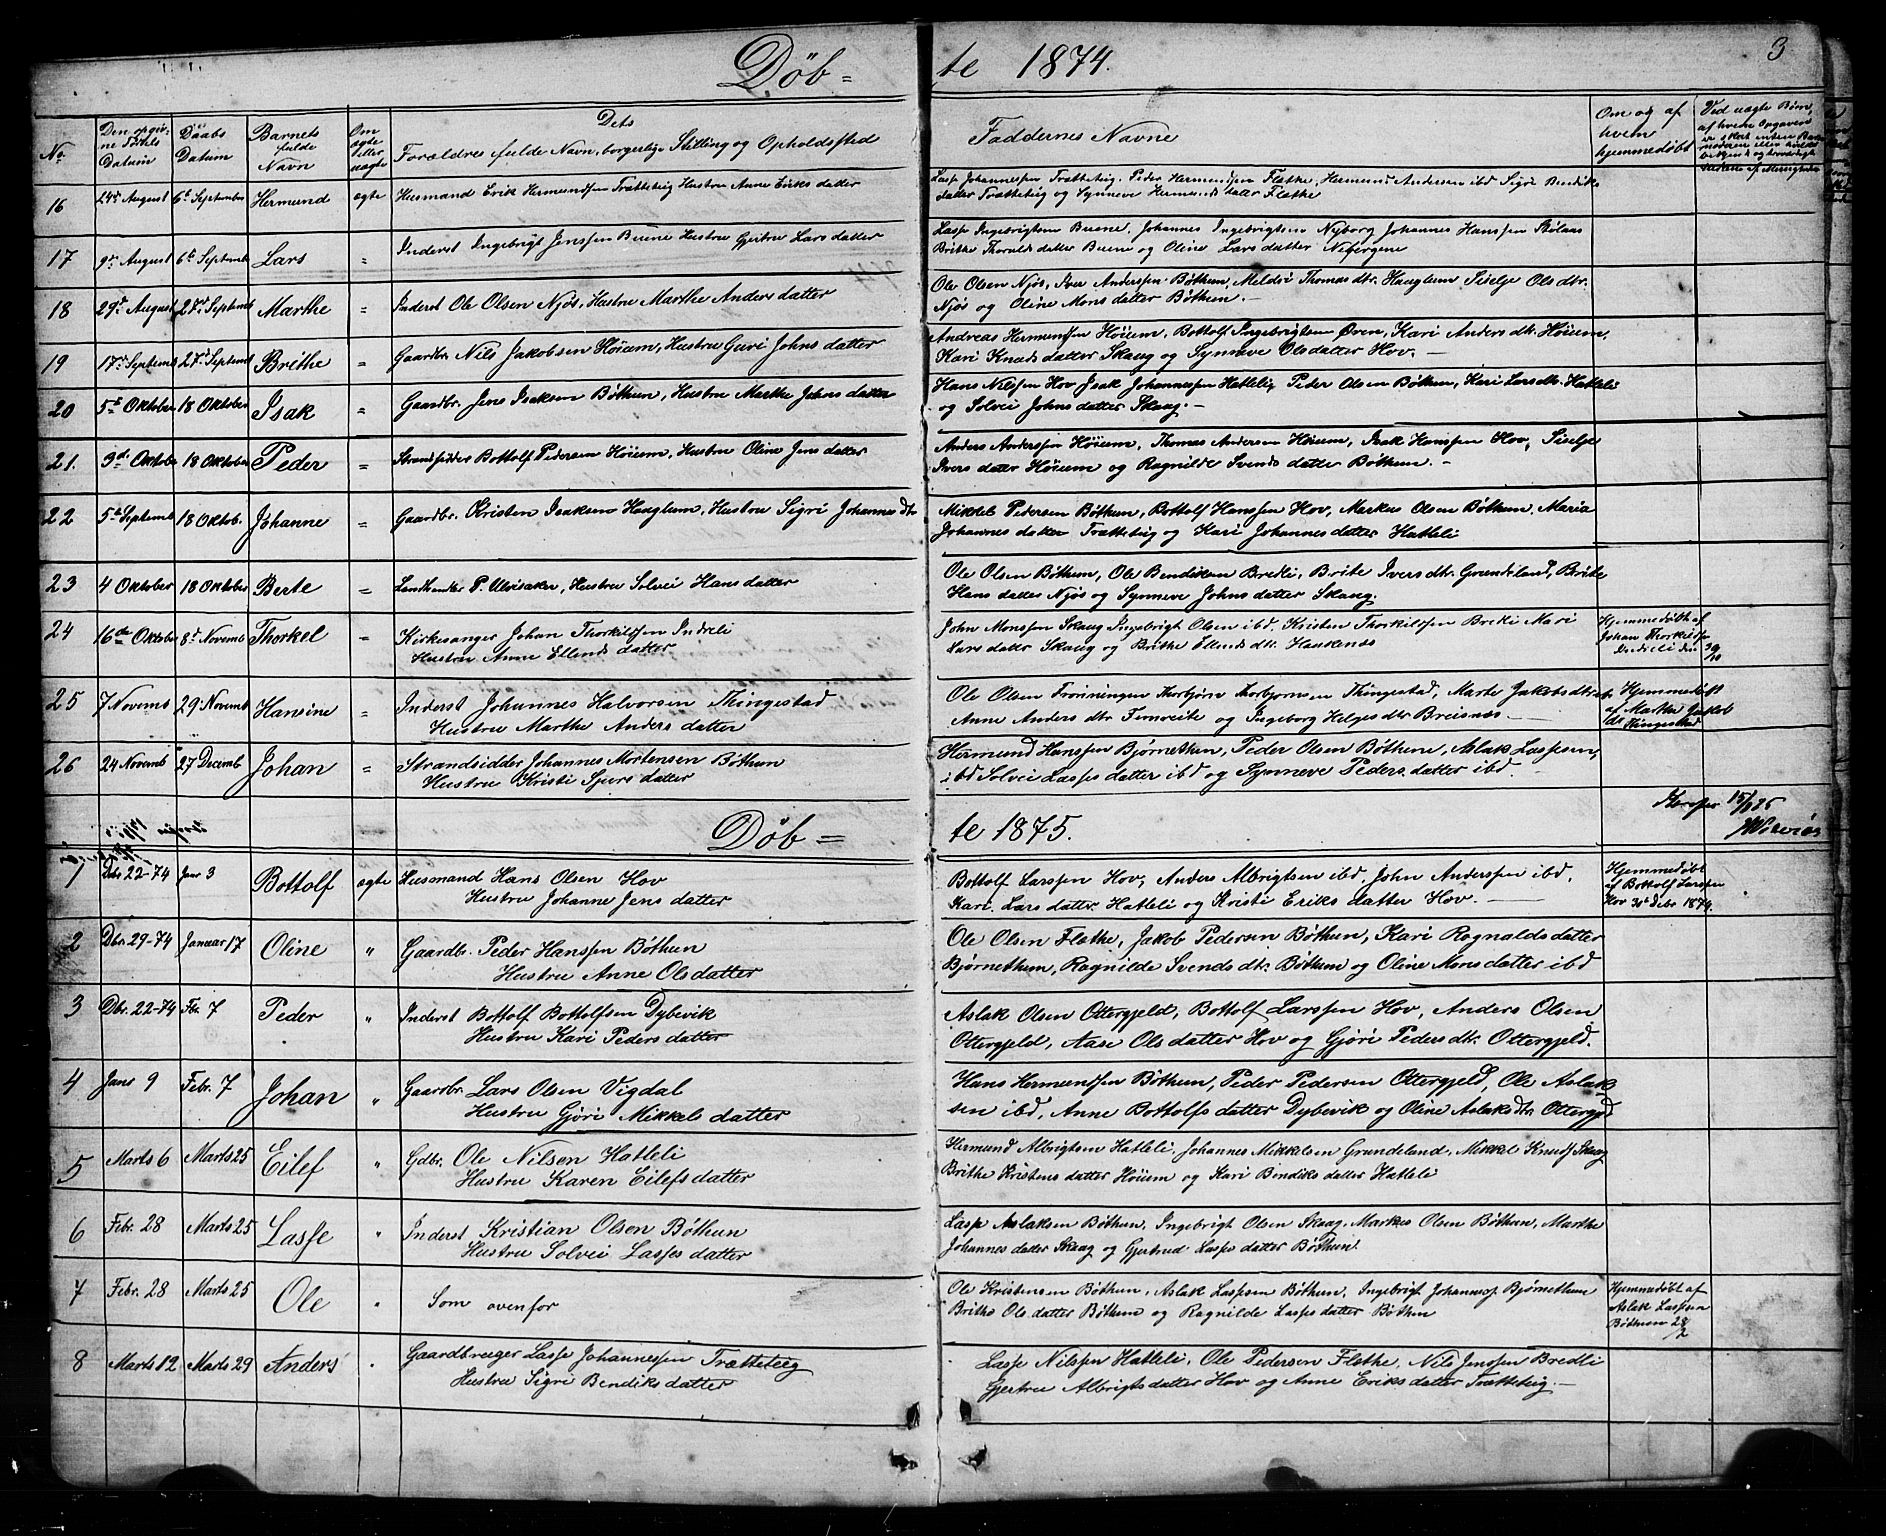 Døb=te 1874.
3
No
Den opgivne Fødsels Datum
Daabs Datum
Barnets fulde Navn
Om ægte eller uægte
Dets Forældres fulde Navn, borgerlige Stilling og Opholdssted
Faddernes Navne
Om og af hvem hjemmedøbt
Ved uægte Børn, af hvem Opgaven er skeet
16 24de August 6te September Hermund ægte Husmand Erik Hermundssen Trætteteig Hustru Anne Eriks datter
Lasse Johannessen Trætteteig. Peder Hermundssen Flæthe, Hermund Andersen ibd Sigri Bendiks
datter Trætteteig og Synneve Hermunds datter Flæthe
17 9de August 6te Septemb Lars " Inderst Ingebrigt Jenssen Buene Hustru Gjertru Lars datter
Lasse Ingebrigtsen Buene, Johannes Ingebrigtsen Nyborg Johannes Hanssen
Brithe Thorvalds datter Buene og Oline Lars datter
18 29de August 27de Septemb Marthe " Inderst Ole Olsen Njøs, Hustru Marthe Anders datter
Ole Olsen Njøs, Iver Anderssen Bøthun, Thomas dtr. Hauglum Siselje Ols dtr.
Njøs og Oline Mons datter Bøthun. —
19 17de Septemb 27de Septemb Brithe " Gaardbr. Nils Jakobsen Høium, Hustru Guri Johns datter
Andreas Hermundssen Høium, Bottolf Ingebrigtsen Øren, Kari Anders dtr. Høium,
Kari Knuds datter Skaug og Synneve Olsdatter Hov. —
20 5te Oktober 18 Oktober Isak " Gaardbr. Jens Isaksen Bøthun, Hustru Marthe Johns datter
Hans Nilssen Hov Isak Johannessen Hatleli, Peder Olsen Bøthun, Kari Larsdtr. Hatleli
og Solvei Johns datter Skaug. —
21. 3de Oktober 18 Oktober Peder " Strandsidder Bottolf Pedersen Høium, Hustru Oline Jens datter
Anders Anderssen Høium, Thomas Andersen Høium, Isak Hanssen Hov, Siselje
Ivers datter Høium og Ragnilde Svends datter Bøthun. —
22 5te Septemb 18 Oktob. Johanne " Gaardbr. Kristen Isaksen Hauglum, Hustru Sigri Johannes dtr
Mikkel Pedersen Bøthun, Bottolf Hanssen Hov, Markus Olsen Bøthun, Maria
Johannes datter Trætteteig og Kari Johannes datter Hatleli
23 4 Oktober 18 Oktober Berte " P. Ulvisaker, Hustru Solvei Hans datter
Ole Olsen Bøthun, Ole Bendiksen Bredli, Brite Ivers dtr. Grundeland, Brite
Hans datter Njøs og Synneve Johns datter Skaug.
24 16de Oktober 8de Novemb Thorkel " Kirkesanger Johan Thorkilssen Indreli
Hustru Anne Ellends datter
John Monssen Skaug Ingebrigt Olsen ibd. Kristen Thorkilssen Bredli Mari
Lars datter Skaug og Brithe Ellends dtr. Haukenæs
Hjemmedøbt af
Johan Thorkilssen
Indreli den 29/10
25 7 Novemb 29 Novemb Hansine " Inderst Johannes Halvorsen Thingestad
Hustru Marthe Anders datter
Ole Olsen Frønningen Thorbjørn Thorbjørnsen Thingestad, Marte Jakobs dtr
Anne Anders dtr Fimreite og Ingeborg Helges dtr Breisnæs —
Hjemmedøbt
af Marthe Jakob
dtr Thingestad
26 24 Novemb 27 Decemb Johan " Strandsidder Johannes Mortensen Bøthun
Hustru Kristi Sjurs datter
Hermund Hanssen Bjørnethun, Peder Olsen Bøthun, Aslak Lassesen,
ibd Solvei Lasses datter ibd og Synneve Peders datter ibd.
Døb=te 1875.
1 Dbr 22-74 Jan 3 Bottolf ægte Husmand Hans Olsen Hov
Hustru Johanne Jens datter
Bottolf Larssen Hov, Anders Albrigtsen ibd, John Anderssen ibd,
Kari Lars datter Hatleli og Kristi Eriks datter Hov. —
Hjemmedøbt
af Bottolf Larssen
Hov 30te Debr 1874.
2 Dbr. 29-74 Januar 17 Oline " Gaardbr. Peder Hanssen Bøthun
Hustru Anne Ols datter
Ole Olsen Flæthe, Jakob Pedersen Bøthun, Kari Ragnalds datter
Bjørnethun, Ragnilde Svends dtr. Bøthun og Oline Mons datter ibd
3 Dbr. 22-74 Fbr. 7 Peder " Inderst Bottolf Bottolfsen Dybevik
Hustru Kari Peders datter
Aslak Olsen Ottergjeld, Bottolf Larssen Hov, Anders Olsen
Ottergjeld, Aase Ols datter Hov og Gjøri Peders dtr. Ottergjeld.
4 Jans 9 Febr. 7 Johan " Gaardbr. Lars Olsen Vigdal
Hustru Gjøri Mikkels datter
Hans Hermundssen Bøthun, Peder Pedersen Ottergjeld, Ole Aslak
sen ibd, Anne Bottolfs datter Dybevik og Oline Aslaks dtr. Ottergjeld
5 Marts 6 Marts 25 Eilef " Gdbr. Ole Nilsen Hatleli
Hustru Karen Eilefs datter
Hermund Albrigtsen Hatleli, Johannes Mikkelsen Grundeland, Mikkel Knuds Skaug
Brithe Kristens datter Høium og Kari Bendiks datter Hatleli
6 Febr. 28 Marts 25 Lasse " Inderst Kristian Olsen Bøthun
Hustru Solvei Lasses datter
Lasse Aslaksen Bøthun, Ingebrigt Olsen Skaug, Markus Olsen Bøthun, Marthe
Johannes datter Skaug og Gjertrud Lasses datter Bøthun.
7 Febr. 28 Marts 25 Ole " Som ovenfor
Ole Kristensen Bøthun, Aslak Lassesen Bøthun, Ingebrigt Johannes. Bjørnethun
Brithe Ols datter Bøthun og Ragnilde Lasses datter Bøthun
Hjemmedøbt af
Aslak Lassesen
Bøthun 28/2
8 Marts 12 Marts 29 Anders " Gaardbruger Lasse Johannessen Trætteteig
Hustru Sigri Bendiks datter
Lasse Nilssen Hatleli, Ole Pedersen Flæthe, Nils Jenssen Bredli
Gjertru Albrigts datter Hov og Anne Eriks datter Trætteteig. —